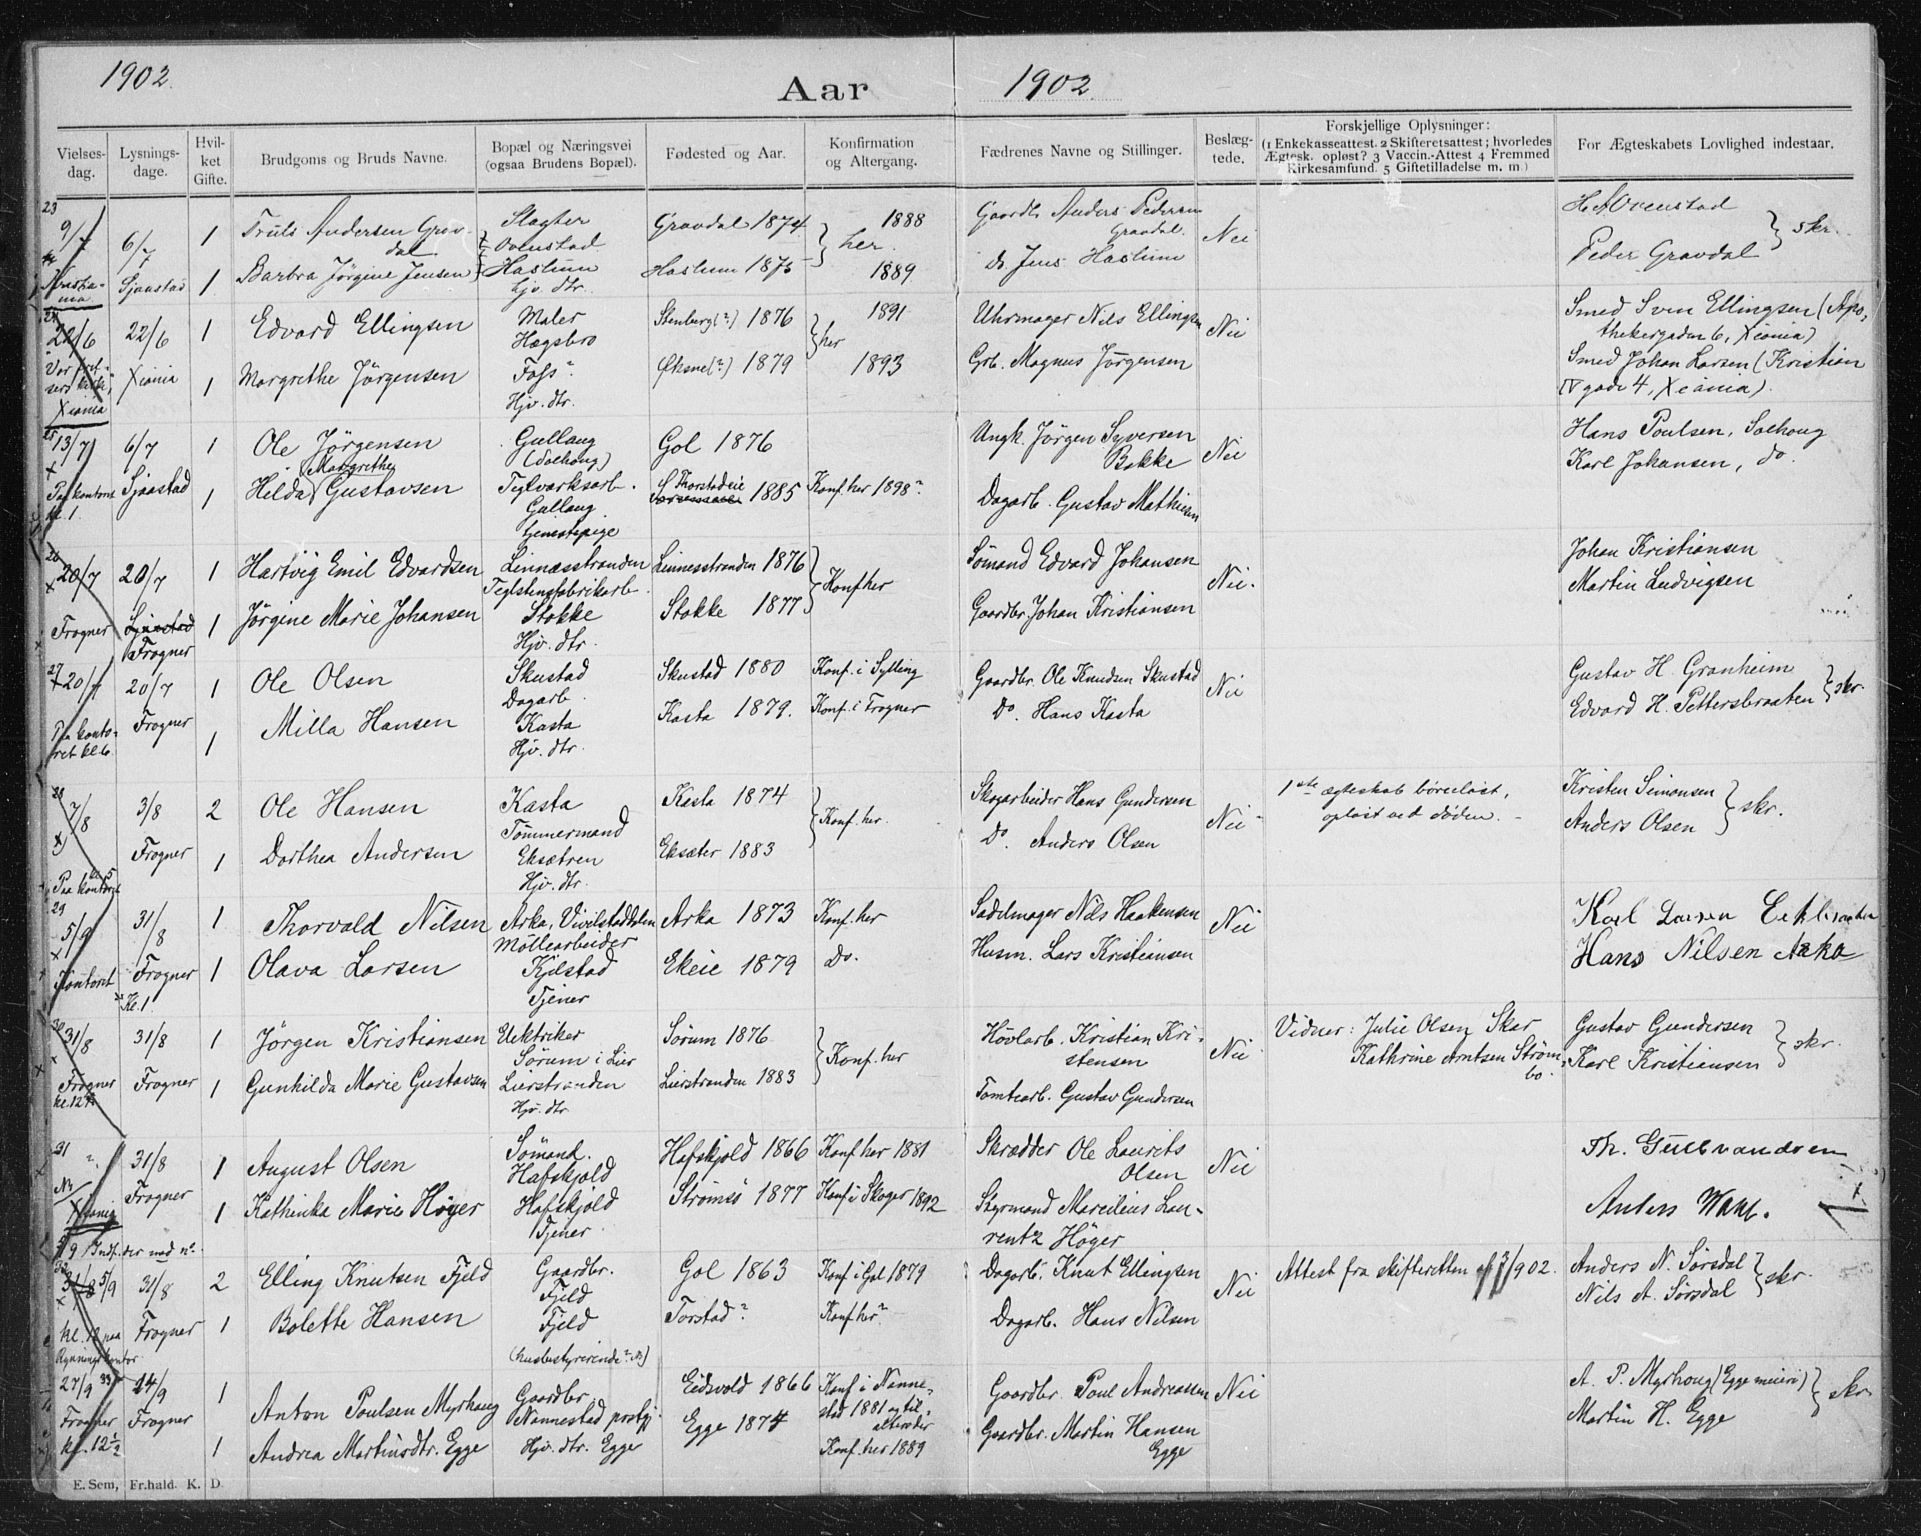 1902.
Aar
1902.
Vielses-dag.
Lysnings-dage.
Hvil-ket Gifte.
Brudgoms og Bruds Navne.
Bopæl og Næringsvei (ogsaa Brudens Bopæl).
Fødested og Aar.
Konfirmation og Altergang.
Fædrenes Navne og Stillinger.
Beslæg-tede.
Forskjellige Oplysninger: (1 Enkekasseattest. 2 Skifteretsattest; hvorledes Ægtesk. opløst? 3 Vaccin.-Attest 4 Fremmed Kirkesamfund. 5 Giftetilladelse m. m.)
For Ægteskabets Lovlighed indestaar.
23
9/7 6/7 1 Truls Andersen Grav- Slagter Gravdal 1874 1888 Gaardb. Anders Pedersen H. A. Ovenstad
dal Ovenstad her. Gravdal. Nei skr.
Sjaastad 1 Barbra Jörgine Jensen Haslum Haslum 1875 1889 Do. Jens Haslum Peder Gravdal
hjv. dtr.
24
22/6 22/6 1 Edvard Ellingsen Maler Stenberg(?) 1876 1891 Uhrmager Nils Ellingsen Nei Smed Sven Ellingsen (Apo-
Hægsbro her thekergaden 6, Xiania)
Vor frel-
sers kirke, Xiania 1 Margrethe Jörgensen Foss? Øksne(?) 1879 1893 Grb. Magnus Jørgensen Smed Johan Larsen (Kristian
Xiania Hjv. dtr. IV gade 4, Xiania).
25
13/7 6/7 1 Ole Jörgensen Gullaug Gol 1876 Ungk. Jörgen Syversen Nei Hans Poulsen, Solhoug
(Solhoug) Bakke Karl Johansen, do.
Paa kontoret Sjaastad 1 Hilda Margrethe Gustavsen Teglværksarb. S. Thorstadeie 1885 Konf. her 1898? Dagarb. Gustav Mathisen
kl. 1. Gullaug
tjenestepige
26
20/7 20/7 1 Hartvig Emil Edvardsen Linnæsstranden Linnesstranden 1876 Sömand Edvard Johansen Nei. Johan Kristiansen
Teglstensfabrikarb. Konf her Martin Ludvigsen
Frogner Sjaastad 1 Jörgine Marie Johansen Stokke Stokke 1877 Gaardbr. Johan Kristiansen
Frogner Hjv. dtr.
27
20/7 20/7 1 Ole Olsen Skustad Skustad 1880 Konf. i Sylling Gaardbr. Ole Knudsen Skustad Nei Gustav H. Granheim
Dagarb. skr.
Paa konto- Frogner 1 Milla Hansen Kasta Kasta 1879. Konf. i Frogner Do. Hans Kasta Edvard H. Pettersbraaten
ret kl. 6. Hjv. dtr.
28
7/8 3/8 2 Ole Hansen Kasta Kasta 1874 Skogarbeider Hans Gundersen Nei 1ste ægteskab børnløst, Kristen Simonsen
Tömmermand Konf. her. opløst ved døden. skr.
Frogner 1 Dorthea Andersen Eksætren Eksæter 1883 Do. Anders Olsen Anders Olsen
Paa kontoret kl 5 Hjv. dtr.
29
5/9 31/8 1 Thorvald Nilsen Arka, Arka 1873 Konf. her Sadelmager Nils Haakensen Nei Karl Larsen
Möllearbeider
Kontoret Frogner 1 Olava Larsen Kjelstad Ekeie 1879 Do. Husm. Lars Kristiansen Hans Nilsen Arka
Kl. 1 Tjener
30
31/8 31/8 1 Jörgen Kristiansen Elektriker Sörum 1876 Hövlarb. Kristian Kri- Nei. Vidner: Julie Olsen Skar Gustav Gundersen
Sörum i Lier Konf. her stensen Kathrine Arntsen Ström- skr.
bo. Karl Kristiansen
Frogner Frogner 1 Gunhilda Marie Gustavsen Lierstranden Lierstranden 1883 Tomtearb. Gustav Gundersen
kl. 12½ Hjv. dtr.
31
31/8 1 August Olsen Sömand. Hafskjold 1866 Konf. her 1881 Skrædder Ole Laurits Nei Th. Gullvandoen
Hafskjold Olsen
Xiania Frogner 1 Kathinka Marie Höyer Hafskjold Strömsö 1877 Konf i Skoger 1892 Styrmand Marcilius Lau- Anders Wahl.
Tjener rentz Höger
32
31/8 5/9 31/8 2 Elling Knutsen Fjeld Gaardbr. Gol 1863 Konf. i Gol 1879 Dagarb. Knut Ellingsen Nei Attest fra skifteretten 902. Anders N. Sørsdal
Fjeld skr.
kl. 12 paa Frogner 1 Bolette Hansen Fjeld Torstad? Konf. her? Dagarb. Hans Nilsen Nils A. Sørsdal
(husbestyrerinde?)
33
27/9 14/9 1 Anton Poulsen Myrhaug Gaardbr. Eidsvold 1866 Konf. i Nanne- Gaardbr. Poul Andreassen Nei A. P. Myrhoug (Egge)
Nannestad prestgj. stad 1881 og til- skr
alters der
Frogner Frogner 1 Andrea Martinsdtr. Egge Hjv. dtr. Egge Egge 1874 Konf. her 1889 Gaardbr. Martin Hansen Martin H. Egge
kl. 12½ Egge
E. Sem, Fr.hald. K. D.